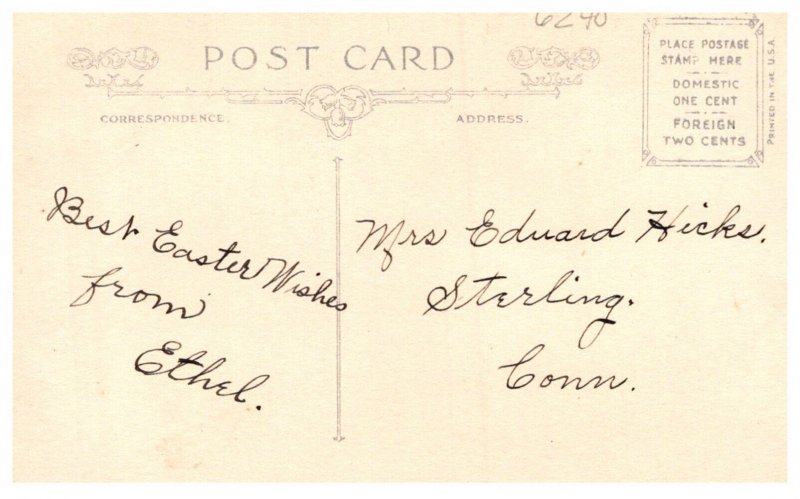 6240
POST CARD
PLACE POSTAGE
STAMP HERE
DOMESTIC
ONE CENT
FOREIGN
TWO CENTS
PRINTED IN THE U.S.A.
CORRESPONDENCE.
ADDRESS.
Best Easter Wishes
from
Ethel.
Mrs Eduard Hicks.
Sterling.
Conn.